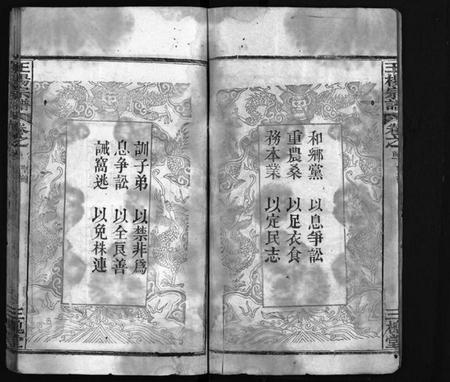 王楊宗譜
卷之
三槐堂
和鄉黨 以息爭訟
重農桑 以足衣食
務本業 以定民志
訓子弟 以禁非爲
息爭訟 以全良善
誡窩逃 以免株連
王楊宗譜
卷之
三槐堂